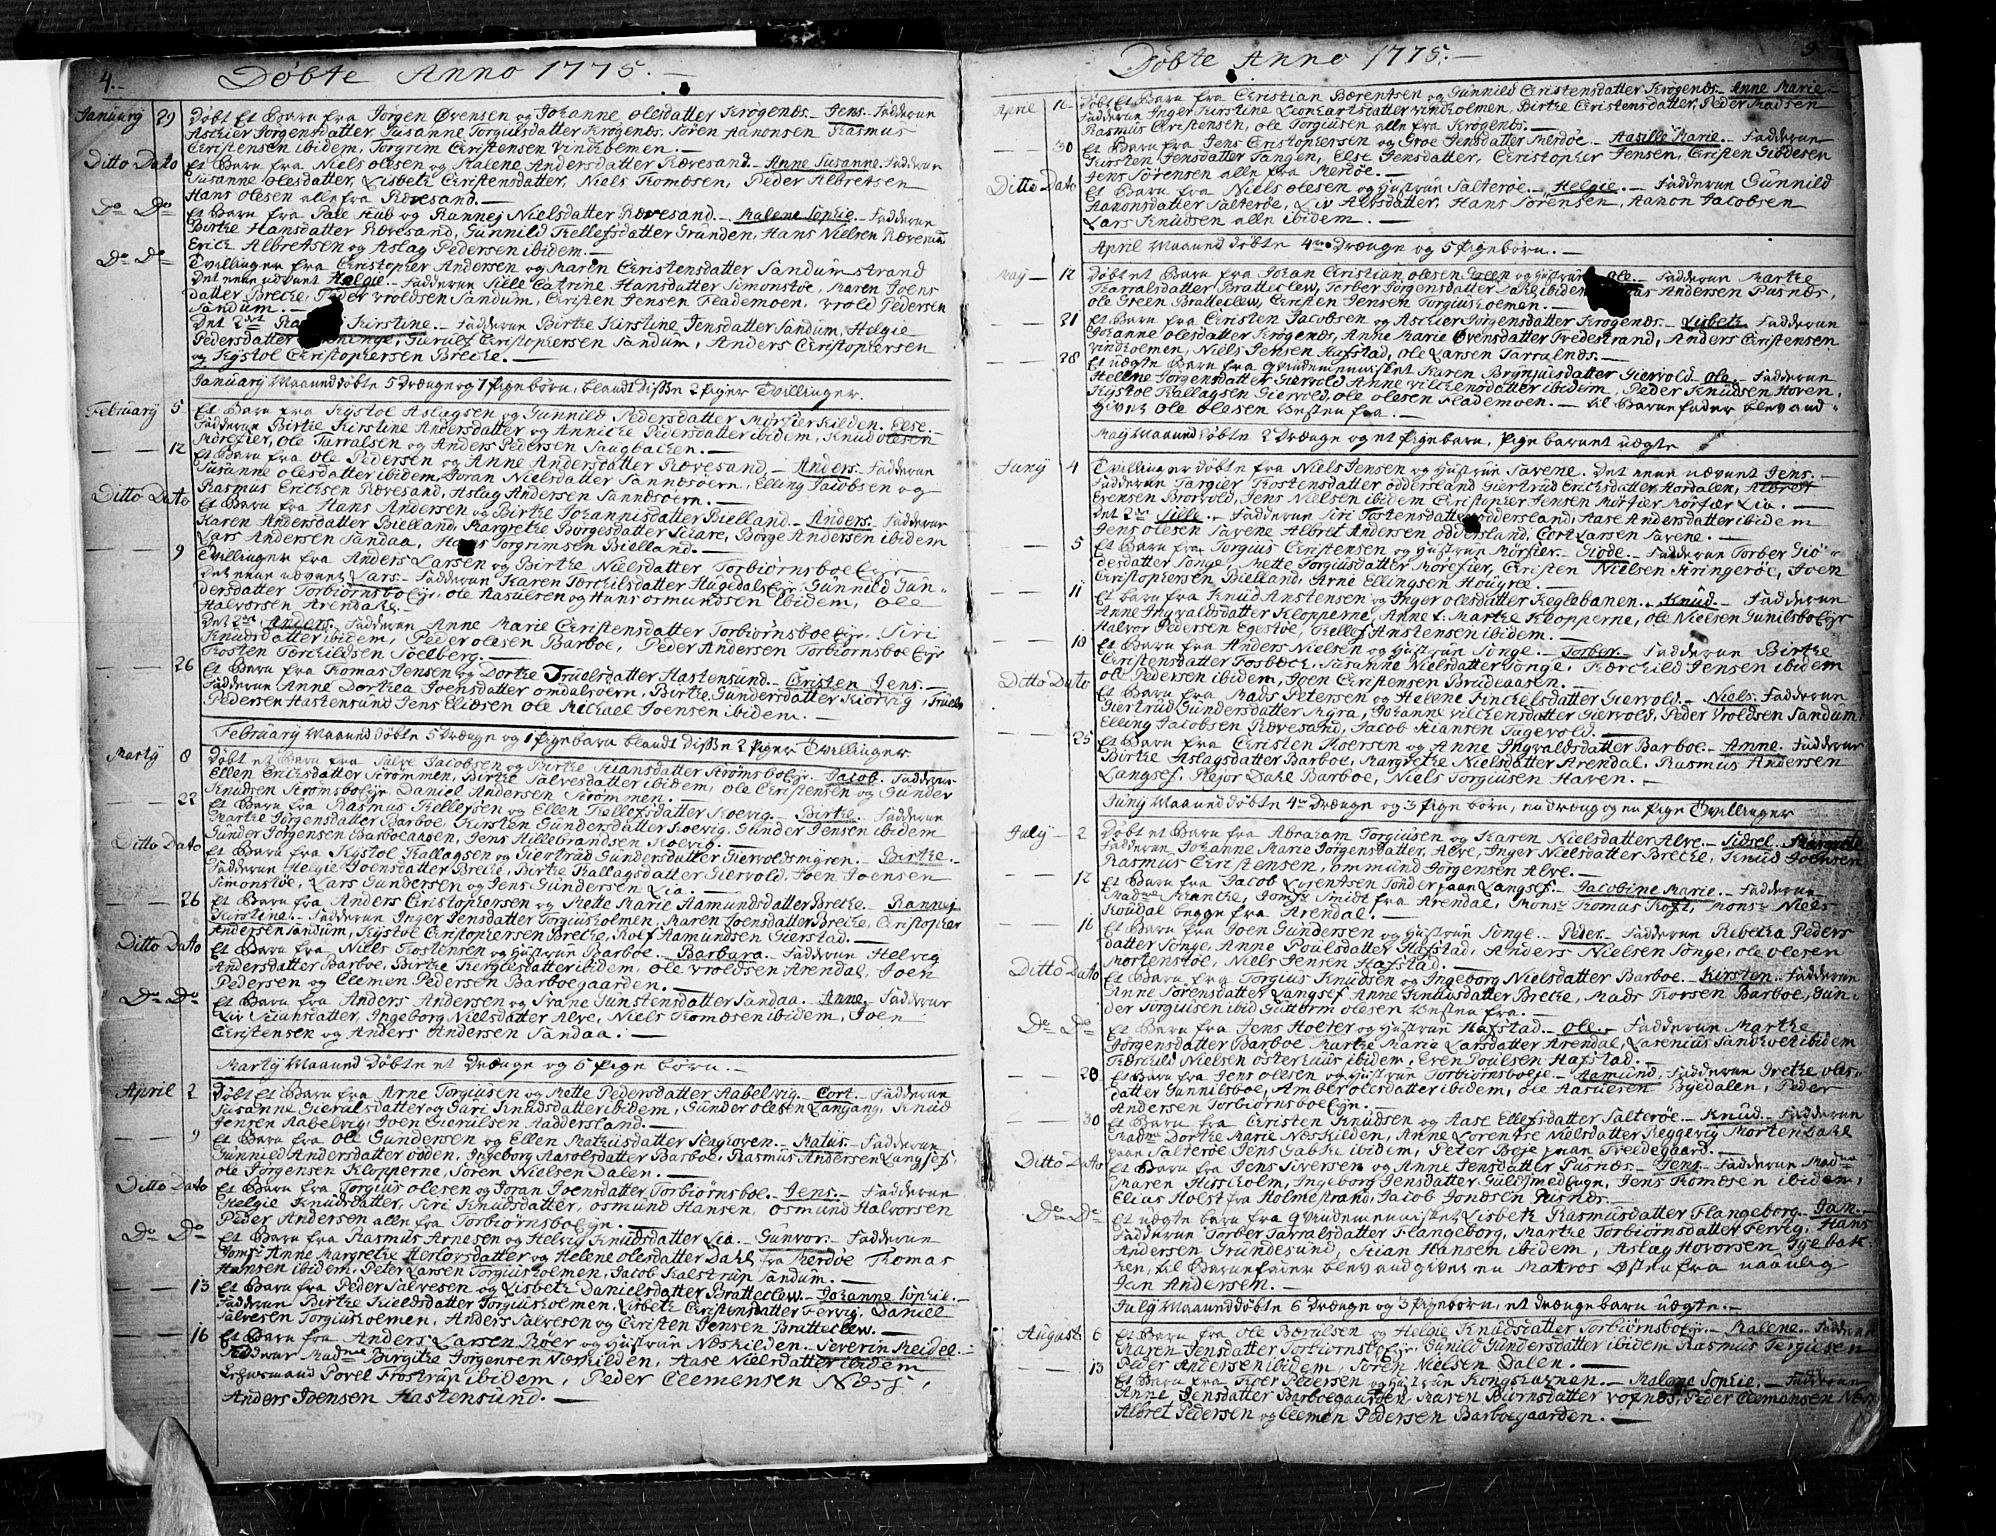 4.
Döbte Anno 1775.
January 29 Döbt Et Barn fra Jörgen Örensen og Johanne Olesdatter Krögenes. Jens. Fadderne
Aschier Jörgensdatter, Susanne Torgulsdatter Krögenes, Sören Aanonsen Rasmus
Christensen ibidem, Torgrim Christensen Vindholmen.
Ditto Dato Et Barn fra Niels Olesen og Malene Andersdatter Rævesand. Anne Susanne. Fadderne
Susanne Olesdatter, Lisbeth Christensdatter, Niels Thomæsen, Peder Albretsen
Hans Olesen alle fra Rævesand.
Do Do Et Barn fra Pale Hub og Rannej Nielsdatter Rævesand. Malene Sophie. Fadderne
Birthe Hansdatter Rævesand, Gunnild Kellefsdatter Grunden, Hans Nielsen Rævesand
Erich Albretsen og Aslag Pedersen ibidem.
Do Do Tvillinger fra Christopher Andersen og Maren Christensdatter Sandumstrand
Det eene nævnt Helgie. Fadderne Sille Catrine Hansdatter Simonstöe, Maren Joens
datter Breche, Peder Wroldsen Sandum, Christen Jensen Flademoen, Wrold Pedersen
Sandum.
Det 2det Kirstine. Fadderne Birthe Kirstine Jensdatter Sandum, Helgie
Pedersdatter Christophersen Sandum, Anders Christophersen
og Kystol Christophersen Breche.
January Maaned döbte 5 Drænge og 1 Pigebörn, blandt disse 2 Piger Tvillinger.
February 5 Et Barn fra Kystol Aslagsen og Gunnild Pedersdatter Mörfierkilden. Else.
Fadderne Birthe Kirstine Andersdatter og Anniche Pedersdatter ibidem, Knud Olesen
Mörefier, Ole Tarralsen og Anders Pedersen Saugbachen.
12 Et Barn fra Ole Pedersen og Anne Andersdatter Rævesand. Anders. Fadderne
Susanne Olesdatter ibidem, Joran Nielsdatter Sannæsöern, Elling Jacobsen og
Rasmus Erichsen Rævesand, Aslag Andersen Sannæsöern.
Ditto Dato Et Barn fra Hans Andersen og Birthe Johannisdatter Bielland. Anders. Fadderne
Karen Andersdatter Bielland, Margrethe Börgesdatter Sciare, Börge Andersen ibidem
Lars Andersen Sandaa, Hans Torgrimsen Bielland.
9 Tvillinger fra Anders Larsen og Birthe Nielsdatter Torbiörnsboe Eje
Det eene nævnt Lars. Fadderne Karen Torchilsdatter Hugedals Eje, Gunnild Gun-
dersdatter Torbiörnsboe Eje, Ole Aasulsen og Hans Osmundsen ibidem, Ole
Halvorsen Arendahl.
Det 2det Anders. Fadderne Anne Marie Christensdatter Torbiörnsboe Eje. Siri
Knudsdatter ibidem, Peder Olesen Barboe, Peder Andersen Torbiörnsboe Eje
Thosten Torchildsen Soelberg.
26 Et Barn fra Thomas Jensen og Dorthe Truelsdatter Hastensund. Christen Jens.
Fadderne Anne Dorthea Joensdatter Omdalsoern, Birthe Gundersdatter Kiörvig, Truels
Pedersen Hastensund Jens Eliæsen Ole Michael Joensen ibidem.
February Maaned döbte 5 Drænge og 1 Pigebarn blandt disse 2 Piger Tvillinger
Martij 8 Döbt et Barn fra Salve Jacobsen og Birthe Stiansdatter Strömsboe Eje. Jacob. Fadderne
Ellen Erichsdatter Strömmen, Birthe Salvesdatter ibidem, Ole Christensen og Gunder
Knudsen Strömsboe Eje Daniel Andersen Strömmen.
22 Et Barn fra Rasmus Kellefsen og Ellen Kellefsdatter Koevig. Birthe. Fadderne
Marthe Jörgensdatter Barboe, Kirsten Gundersdatter Koevig, Gunder Jensen ibidem
Gunder Jörgensen Barboeaasen, Jens Hillebrandsen Koevig.
Ditto Dato Et Barn fra Kystol Kallagsen og Giertrud Gundersdatter Giervoldsmyren. Birthe.
Fadderne Helgie Joensdatter Breche, Birthe Kallagsdatter Giervold, Joen Joensen
Simonstöe, Lars Gundersen og Jens Gundersen Lia.
26 Et Barn fra Anders Christophersen og Mette Marie Aamundsdatter Breche. Rannej
Kirstine. Fadderne Inger Jensdatter Torgiusholmen, Maren Joensdatter Breche, Christopher
Andersen Sandum, Kystol Christophersen Breche, Rolf Aamundsen Gierstad.
Ditto Dato Et Barn fra Niels Thostensen og Hustrue Barboe. Barbara. Fadderne Helvig
Andersdatter Barboe, Birthe Therglesdatter ibidem, Ole Wroldsen Arendal, Joen
Pedersen og Clemen Pedersen Barboegaarden.
Do Do Et Barn fra Anders Andersen og Svane Gunstensdatter Sandaa. Anne. Fadderne
Liv Stiansdatter, Ingeborg Nielsdatter Alve, Niels Thomæsen ibidem, Joen
Christensen og Anders Andersen Sandaa.
Martij Maaned Döbte et Drænge og 5 Pige börn.
April 2 Döbt Et Barn fra Arne Torgiusen og Mette Pedersdatter Aabelvig. Cort. Fadderne
Susanne Gierulsdatter og Guri Knudsdatter ibidem, Gunder Olesen Langang, Knud
Jensen Aabelvig, Joen Gierulsen Haddersland.
9 Et Barn fra Ole Gundersen og Ellen Mathiisdatter Seaghoven. Matiis. Fadderne
Gunnild Andersdatter Odden, Ingeborg Aasolsdatter Barboe, Rasmus Andersen Langsef
Ole Jörgensen Klopperne, Sören Nielsen Dalen.
Ditto Dato Et Barn fra Torgius Olesen og Joran Joensdatter Torbiörnsboe. Jens. Fadderne
Helgie Knudsdatter, Siri Knudsdatter, Osmund Hansen, Osmund Halvorsen
Peder Andersen alle fra Torbiörnsboe Eje.
Do Do Et Barn fra Rasmus Arnesen og Helvig Knudsdatter Lia. Gunvor. Fadderne
Jomfr. Anne Margrethe Herlovsdatter og Helene Olesdatter Dahl fra Merdöe Thomas
Hansen ibidem, Peter Larsen Torgiusholmen, Jacob Kalstrup Sandum.
13 Et Barn fra Peder Salvesen og Lisbeth Danielsdatter Bratteclew. Johanne Sophie.
Fadderne Birthe Kieldsdatter Torgiusholmen, Lisbeth Christensdatter Fervig, Daniel
Salvesen Torgiusholmen, Anders Salvesen og Christen Jensen Bratteclew.
16 Et Barn fra Anders Larsen Röer og Hustrue Næskilden. Severin Meidel.
Fadderne Madme Birgithe Jörgensen Næskilden, Aase Nielsdatter ibidem
Povel Frostrup ibidem, Peder Clemensen Næss,
Anders Joensen Hastensund.
5
Döbte Anno 1775.
April 16 Döbt Et Barn fra Christian Bærentsen og Gunnild Christensdatter Krögenes. Anne Marie.
Fadderne Inger Kirstine Leonhartsdatter Vindholmen, Birthe Christensdatter, Peder Madsen
Rasmus Christensen, Ole Torgiusen alle fra Krögenes.
30 Et Barn fra Jens Christophersen og Groe Jensdatter Merdöe. Aasille Marie. Fadderne
Kirsten Jensdatter Tangen, Else Jensdatter, Christopher Jensen, Christen Giödesen
Jens Sörensen alle fra Merdöe.
Ditto Dato Et Barn fra Niels Olesen og Hustrue Salteröe. Helgie. Fadderne Gunnild
Aanonsdatter Salteröe, Liv Alvsdatter, Hans Sörensen, Aanon Jacobsen
Lars Knudsen alle ibidem.
April Maaned döbte 4re Drænge og 5 Pigebörn.
May 12 Döbt et Barn fra Johan Christian Olesen Green og Hustrue Ole. Fadderne Marthe
Tarralsdatter Bratteclew, Torber Jörgensdatter Dahl ibidem Andersen Pusnes,
Ole Green Bratteclew, Christen Jensen Torgiusholmen.
21 Et Barn fra Christen Jacobsen og Aschier Jörgensdatter Krögenes. Lisbeth. Fadderne
Johanne Olesdatter Krögenes, Anne Marie Övensdatter Tvedestrand, Anders Christensen
Vindholmen, Niels Jensen Hafstad, Ole Larsen Tarralnes.
28 Et uægte Barn fra Qvindemennisket Karen Brynjulsdatter Giervold. Ole. Fadderne
Hellene Jörgensdatter Giervold Anne Vilchensdatter ibidem, Peder Knudsen Hoven,
Kystol Kallagsen Giervold, Ole Olesen Flademoen. Til Barnefader blev and-
given Ole Olesen Vesten fra.
Maij Maaned döbte 2 Drænge og et Pigebarn, Pige barnet uægte
Junij 4 Tvillinger döbte fra Niels Jensen og Hustrue Savene. Det eene nævnt Jens.
Fadderne Targier Thostensdatter Oddersland Giertrud Erichsdatter Hordalen, Albret
Evensen Brorvold, Jens Nielsen ibidem Christopher Jensen Mörfier Lia.
Det 2det Sille. Fadderne Siri Tostensdatter Oddersland, Aase Andersdatter ibidem
Jens Olesen Savene Albret Andersen Oddersland, Cort Larsen Savene.
5 Et Barn fra Torgius Christensen og Hustrue Mörfier. Giöde. Fadderne Torber Giö-
desdatter Songe, Mette Torgiusdatter Mörefier, Christen Nielsen Kringeröe, Joen
Christophersen Bielland, Arne Ellingsen Hougree.
11 Et Barn fra Knud Anstensen og Inger Olesdatter Keglebanen. Knud. Fadderne
Anne Ingvaldsdatter Klopperne, Anne f. Marthe Klopperne, Ole Nielsen Gunilsboe Eje
Halvor Pedersen Egestöe, Kellef Anstensen ibidem.
18 Et Barn fra Anders Nielsen og Hustrue Songe. Torber. Fadderne Birthe
Christensdatter Fosbæch, Susanne Nielsdatter Songe, Therchild Jensen ibidem
Ole Pedersen ibidem, Joen Christensen Brudeaasen.
Ditto Dato Et Barn fra Mads Petersen og Helene Finchelsdatter Giervold. Niels. Fadderne
Giertrud Gundersdatter Myra, Johanne Vilchensdatter Giervold, Peder Wroldsen Sandum,
Elling Jacobsen Rævesand, Jacob Stiansen Fagevold.
25 Et Barn fra Christen Thoersen og Anne Ingvaldsdatter Barboe. Anne. Fadderne
Birthe Aslagsdatter Barboe, Margrethe Nielsdatter Arendal, Rasmus Andersen
Langsef, Rejor Dahl Barboe, Niels Torgiusen Haven.
Junij Maaned döbte 4re Drænge og 3 Pige börn, en dræng og en Pige Tvillinger
July 2 Döbt et Barn fra Abraham Torgiusen og Karen Nielsdatter Alve. Sidsel Margrethe
Fadderne Johanne Marie Jörgensdatter, Alve, Inger Nielsdatter Breche, Knud Joensen
Rasmus Christensen, Ommund Jörgensen Alve.
12 Et Barn fra Jacob Lorentsen Tönder paa Langsef. Jacobine Marie. Fadderne
Madme Schancke, Jomfr. Smidt fra Arendal, Monsr Thomas Koft, Monsr Niels
Roudal begge fra Arendal.
16 Et Barn fra Joen Gundersen og Hustrue Songe. Peder. Fadderne Rebecha Peders
datter Songe, Anne Poulsdatter Hafstad, Anders Nielsen Songe, Ole Olesen
Mortenstöe, Niels Jensen Hafstad.
Ditto Dato Et Barn fra Torgius Knudsen og Ingeborg Nielsdatter Barboe. Kirsten. Fadderne
Anne Sörensdatter Langsef Anne Knudsdatter Breche, Mads Thorsen Barboe, Gun-
der Torgiusen ibid Guttorm Olesen Vesten fra.
Do Do Et Barn fra Jens Holter og Hustrue Hafstad. Ole. Fadderne Marthe
Jörgensdatter Barboe Marthe Maria Larsdatter Arendal, Lasenius Sandhoel ibidem
Therchild Nielsen Osterhuus ibidem, Even Poulsen Hafstad.
28 Et Barn fra Jens Olesen og Hustrue Torbiörnsboeje. Aamund. Fadderne Grethe Oles-
datter Gunnilsboe, Amber Olesdatter ibidem, Ole Aasulsen Byedalen, Peder
Andersen Torbiörnsboe Eje.
30 Et Barn fra Christen Knudsen og Aase Ellefsdatter Salteröe. Knud. Fadderne
Madme Dorthe Marie Næskilden, Anne Lorentse Nielsdatter Reggevig Morten Dahl
paa Salteröe Jens Gabhe ibidem, Peter Boje paa Tvedegaard.
Ditto Dato Et Barn fra Jens Siversen og Anne Jensdatter Pusnæs. Jens. Fadderne Madme
Maren Hirsholm, Ingeborg Jensdatter Guldsmedengn, Jens Thomæsen ibidem,
Elias Holst fra Holmestrand, Jacob Jonæsen Pusnæs.
Do Do Et uægte barn fra Qvindemennisket Lisbeth Rasmusdatter Flangeborg. Jan.
Fadderne Torber Tarralsdatter Flangeborg, Marthe Torbiörnsdatter Fervig, Hans
Andersen Grundesund, Stian Hansen ibidem, Aslag Hovorsen Gyebak-
ken, til Barnefader blev andgiven en Matros Östen fra navnlig
Jan Andersen.
July Maaned döbte 6 Drænge og 3 Pigebörn, et drængebarn uægte.
August 6 Et Barn fra Ole Bærulsen og Helgie Knudsdatter Torbiörnsboe Eje. Malene. Fadderne
Maren Jensdatter Torbiörnsboe Eje, Gunild Gundersdatter ibidem Rasmus Tergiesen
Peder Andersen ibidem, Sören Nielsen Dalen.
13 Et Barn fra Thoer Pedersen og Hustrue Kongshavnen. Malene Sophie. Fadderne
Anne Jensdatter Barboegaarden Maren Biörnsdatter Vofnes, Peder Clemonsen Næs
Albret Pedersen og Clemen Pedersen Barboegaarden.